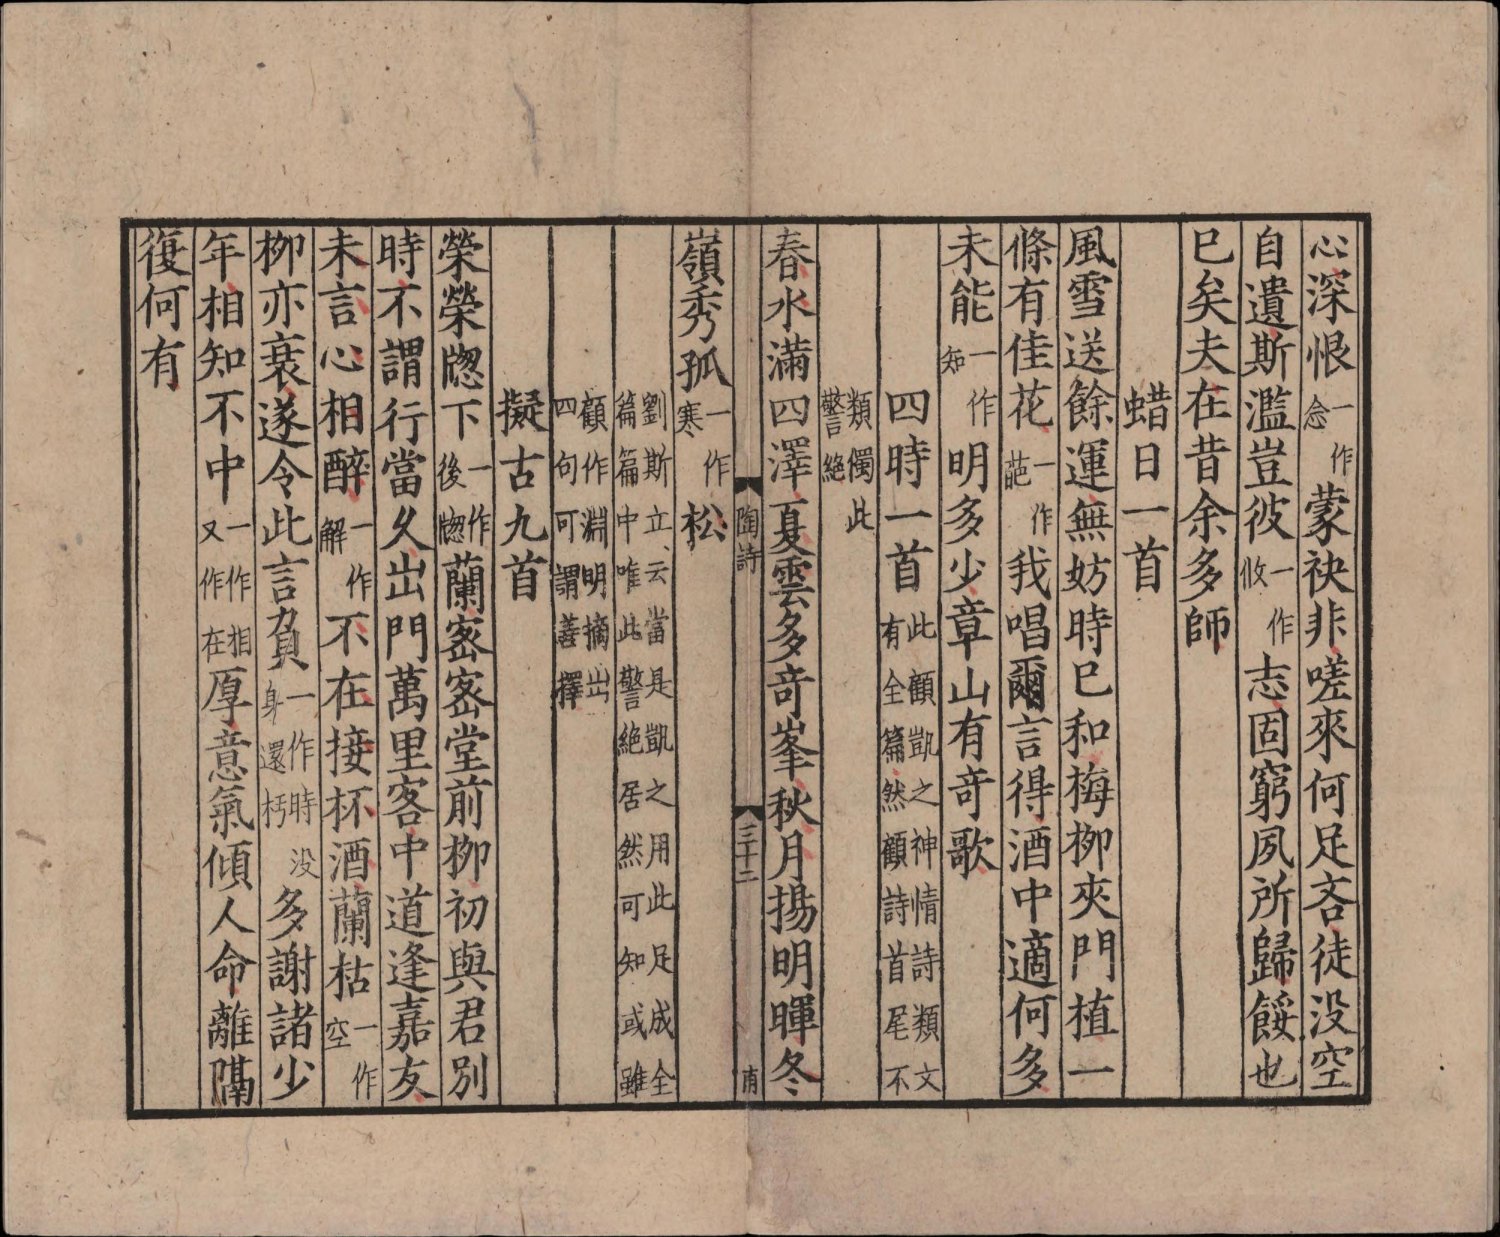 心深恨一作念蒙袂非嗟來何足吝徒没空
自遺斯濫豈彼一作攸志固窮夙所歸餒也
已矣夫在昔余多師
蜡日一首
風雪送餘運無妨時已和梅栁夾門植一
條有佳花一作葩我唱爾言得酒中適何多
未能一作知明多少章山有竒歌
四時一首此顧凱之神情詩類文有全篇然顧詩首尾不
類獨此警絶
春水滿四澤夏雲多竒峯秋月揚明暉冬
陶詩 三十二 甫
嶺秀孤一作寒松
劉斯立云當是凱之用此足成全篇篇中唯此警絶居然可知或雖
顧作淵明摘出四句可謂善擇
擬古九首
榮榮牕下一作後牕蘭宻宻堂前栁初與君别
時不謂行當久出門萬里客中道逢嘉友
未言心相醉一作解不在接杯酒蘭枯一作空
栁亦衰遂令此言負一作時没身還朽多謝諸少
年相知不中一作相又作在厚意氣傾人命離隔
復何有